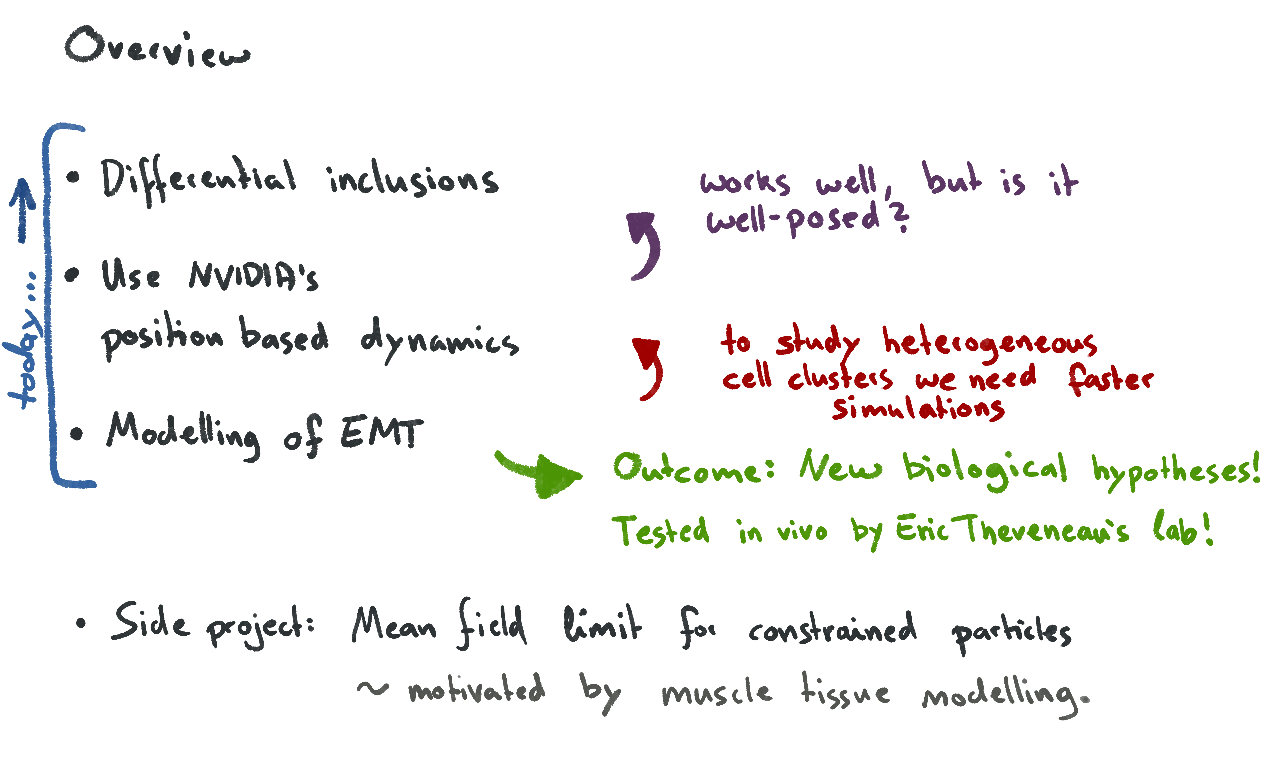 Overview
• Differential inclusions
works well, but is it
well-posed?
• Use NVIDIA's
position based dynamics
to study heterogeneous
cell clusters we need faster
simulations
• Modelling of EMT
today...
Outcome: New biological hypotheses!
Tested in vivo by Eric Theveneau's lab!
• Side project: Mean field limit for constrained particles
~ motivated by muscle tissue modelling.